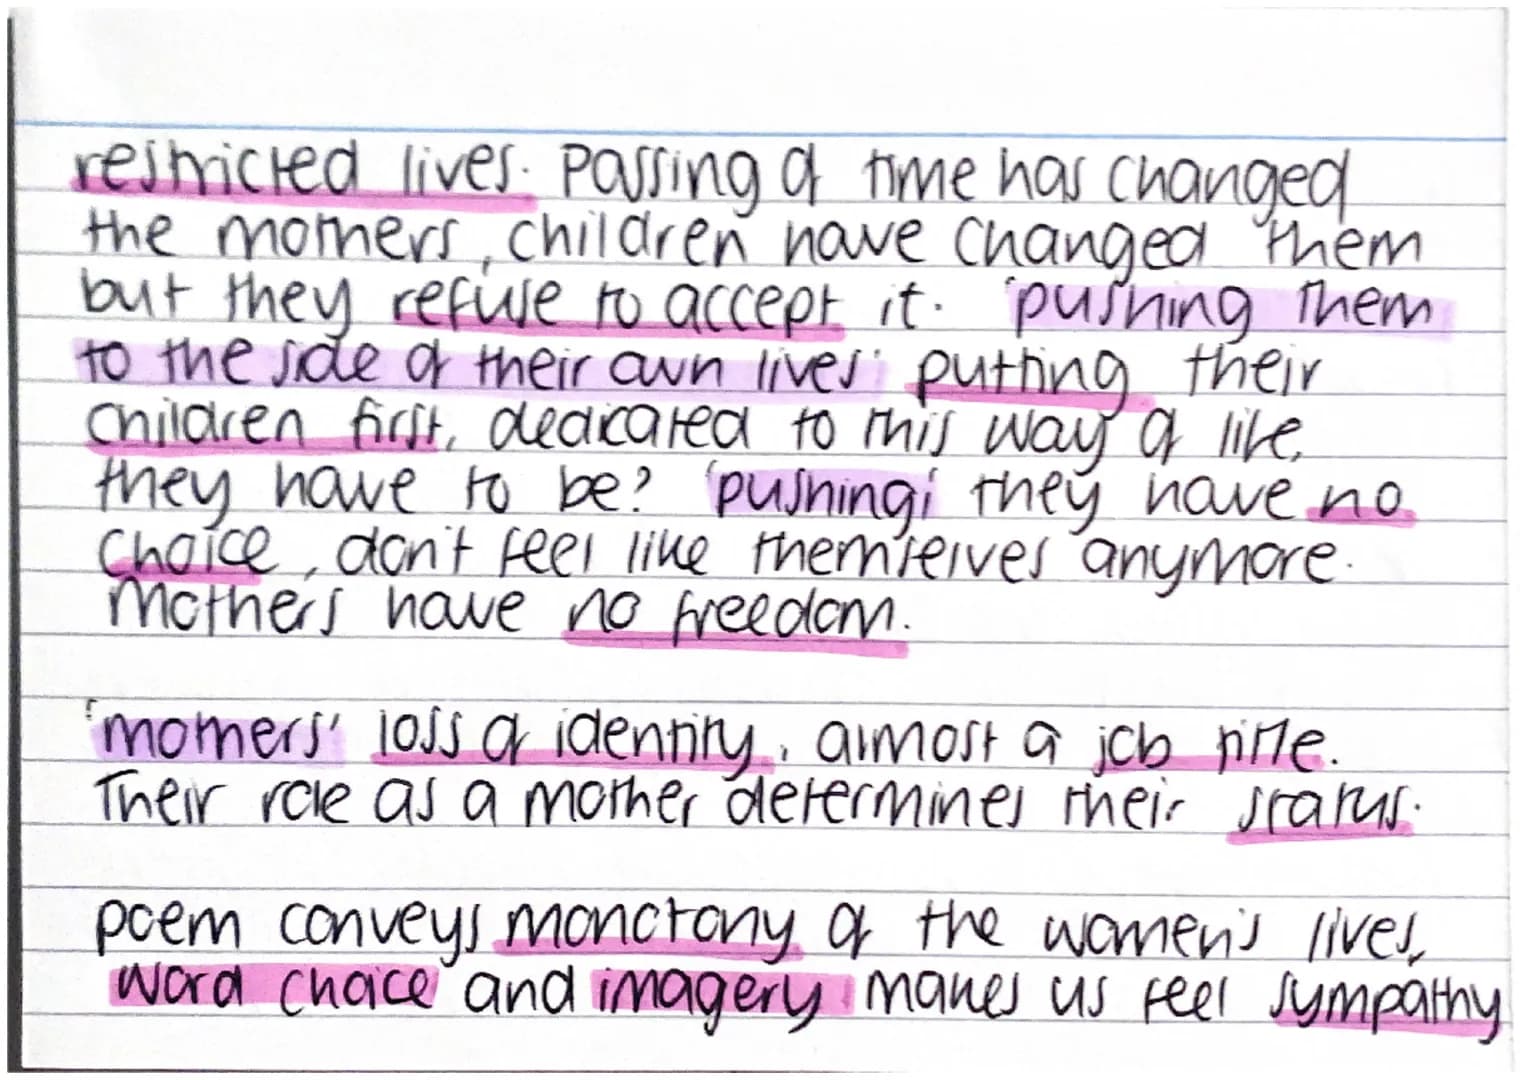 restricted lives. Passing of time has changed
the mothers, children have changed them
but they refuse to accept it. 'pushing them
to the side of their own lives' putting their
children first, dedicated to this way of life,
they have to be? 'pushing' they have no
choice, don't feel like themselves anymore.
Mothers have no freedom.
'mothers' loss of identity, almost a job title.
Their role as a mother determines their status.
poem conveys monotony of the women's lives,
word choice and imagery makes us feel sympathy